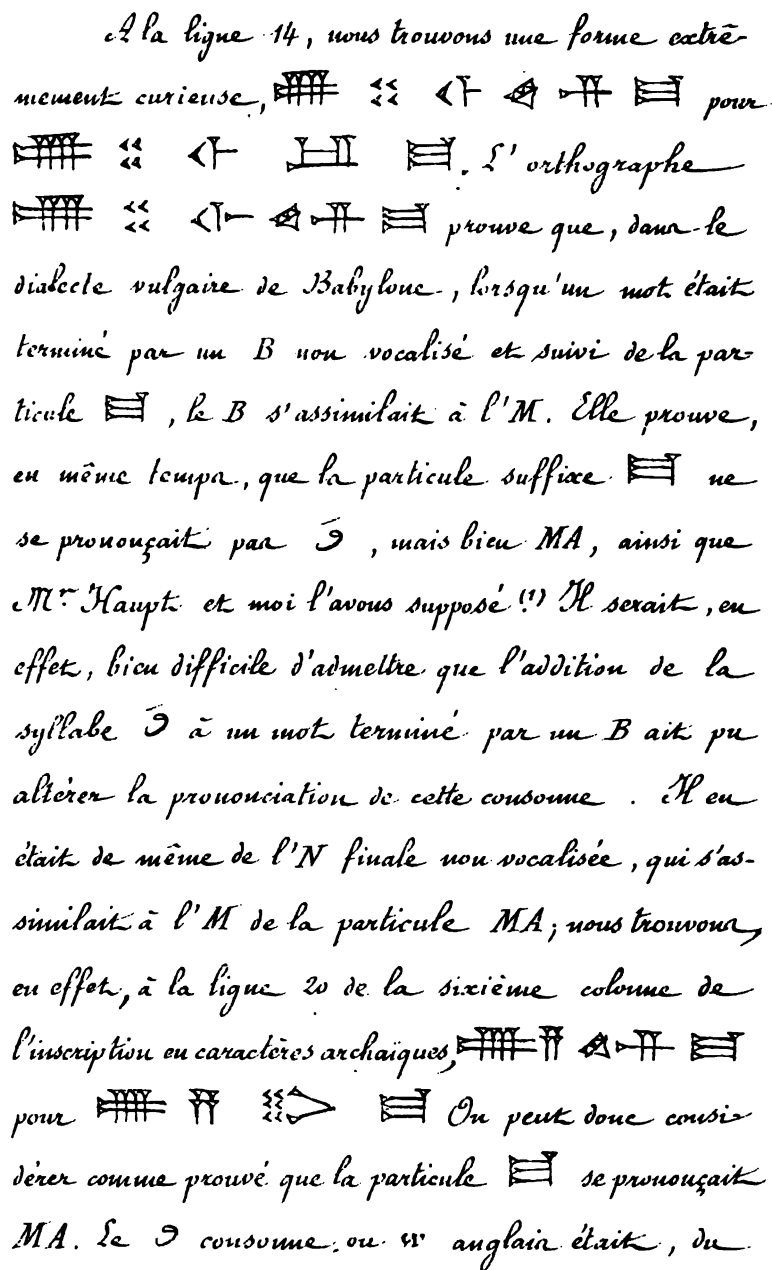 A la ligne 14, nous trouvons une forme extrê-
mement curieuse, 𒌑 𒊺 𒅆 𒅎 𒈠 pour
𒌑 𒊺 𒅆 𒅁 𒈠. L'orthographe
𒌑 𒊺 𒅆 𒅎 𒈠 prouve que, dans le
dialecte vulgaire de Babylone, lorsqu'un mot était
terminé par un B non vocalisé et suivi de la par-
ticule 𒈠, le B s'assimilait à l'M. Elle prouve,
en même temps, que la particule suffixe 𒈠 ne
se prononçait pas وَ, mais bien MA, ainsi que
Mr Haupt et moi l'avons supposé (1). Il serait, en
effet, bien difficile d'admettre que l'addition de la
syllabe وَ à un mot terminé par un B ait pu
altérer la prononciation de cette consonne. Il en
était de même de l'N finale non vocalisée, qui s'as-
similait à l'M de la particule MA; nous trouvons,
en effet, à la ligne 20 de la sixième colonne de
l'inscription en caractères archaïques, 𒌑 𒍝 𒅎 𒈠
pour 𒌑 𒍝 𒅔 𒈠 On peut donc consi-
dérer comme prouvé que la particule 𒈠 se prononçait
MA. Le و consonne ou w anglais était, du